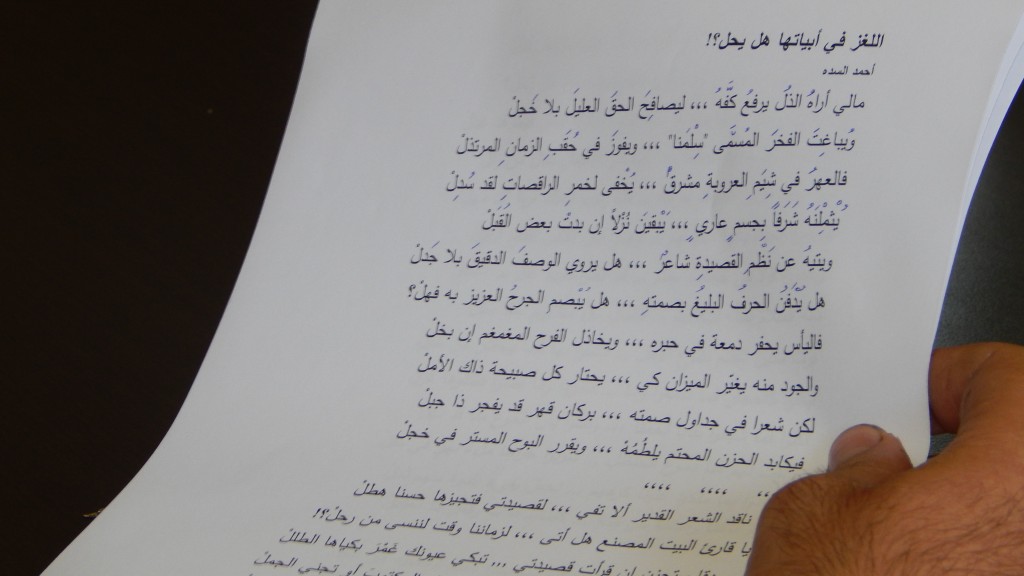 اللغز في أبياتها هل يحل؟!
أحمد السده
مالي أراهُ الذلُ يرفعُ كَفَّهُ ،،، ليصافِحَ الحقَ العليلَ بلا خَجلْ
ويباغِتَ الفخرَ المُسمَّى "سِلْمَنا" ،،، ويفوزَ في حُقَبِ الزمانِ المرتذلْ
فالعهرُ في شِيَمِ العروبةِ مشرقٌ ،،، يُخْفى لخمرِ الراقصاتِ لقد سُدِلْ
يُثْمِلْنَهُ شَرَفاً بِجسمٍ عاريٍ ،،، يَبْقينَ نُزْلاً إن بدتْ بعض القُبَلْ
ويتيهُ عن نَظْمِ القصيدةِ شاعرٌ ،،، هل يروي الوصفَ الدقيقَ بلا جَدلْ
هل يُدْفَنُ الحرفُ البليغُ بصمتهِ ،،، هل يَبْصم الجرحُ العزيز به فهلْ؟
فاليأس يحفر دمعة في حبره ،،، ويخاذل الفرح المغمغم إن بخلْ
والجود منه يغيّر الميزان كي ،،، يحتار كل صبيحة ذاك الأملْ
لكن شعرا في جداول صمته ،،، بركان قهر قد يفجر ذا جبلْ
فيكابد الحزن المحتم يلطُمُهْ ،،، ويقرر البوح المستر في خجلْ
،، ،،،، ،،،،
ناقد الشعر القدير ألا تفي ،،، لقصيدتي فتجيزها حسنا هطلْ
يا قارئ البيت المصنع هل أتى ،،، لزماننا وقت لننسى من رحلْ؟!
تحزن إن قرأت قصيدتي ،،، تبكي عيونك غَمْرَ بكياها الطللْ
أو تجلي الجملْ